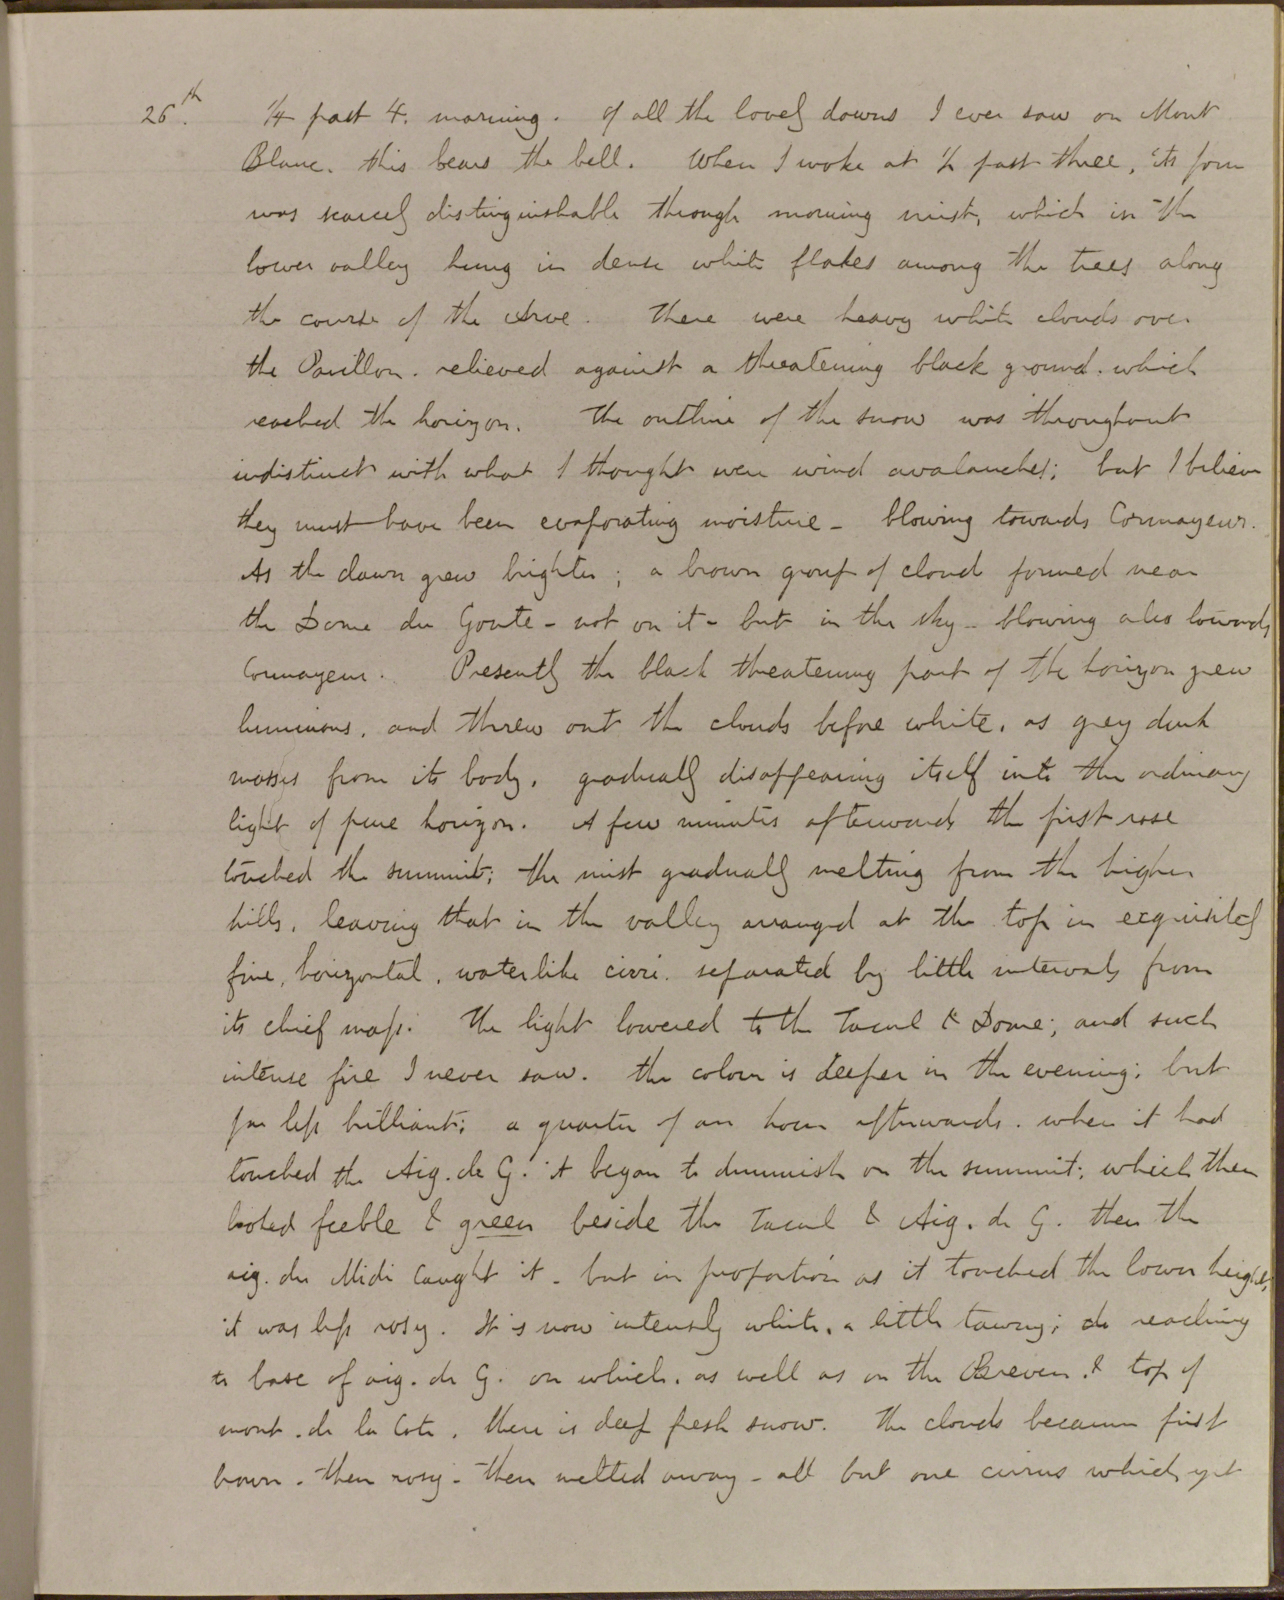 26.th 1/4 past 4. morning. Of all the lovely dawns I ever saw on Mont
Blanc. this bears the bell. When I woke at 1/2 past three, its form
was scarcely distinguishable through morning mist, which in the
lower valley hung in dense white flakes among the trees along
the course of the Arve. There were heavy white clouds over
the Pavillon. relieved against a threatening black ground. which
reached the horizon. The outline of the snow was throughout
indistinct with what I thought were wind avalanches; but I believe
they must have been evaporating moisture - blowing towards Cormayeur.
As the dawn grew brighter; a brown group of cloud formed near
the Dome du Goute - not on it - but in the sky - blowing also towards
Cormayeur. Presently the black threatening part of the horizon grew
luminous, and threw out the clouds before white, as grey dark
masses from its body, gradually disappearing itself into the ordinary
light of pure horizon. A few minutes afterwards the first rose
touched the summit; the mist gradually melting from the higher
hills, leaving that in the valley arranged at the top in exquisitely
fine, horizontal, waterlike cirri. separated by little intervals from
its chief mass. The light lowered to the Tacul & Dome; and such
intense fire I never saw. The colour is deeper in the evening; but
far less brilliant; a quarter of an hour afterwards. when it had
touched the Aig. de G. it began to diminish on the summit; which then
looked feeble & green beside the Tacul & Aig. de G. then the
aig. du Midi caught it - but in proportion as it touched the lower heights,
it was less rosy. It is now intensely white, a little tawny; do reaching
to base of aig. de G. on which, as well as on the Breven & top of
mont. de la Cote, there is deep fresh snow. The clouds became first
brown - then rosy - then melted away - all but one cirrus which yet